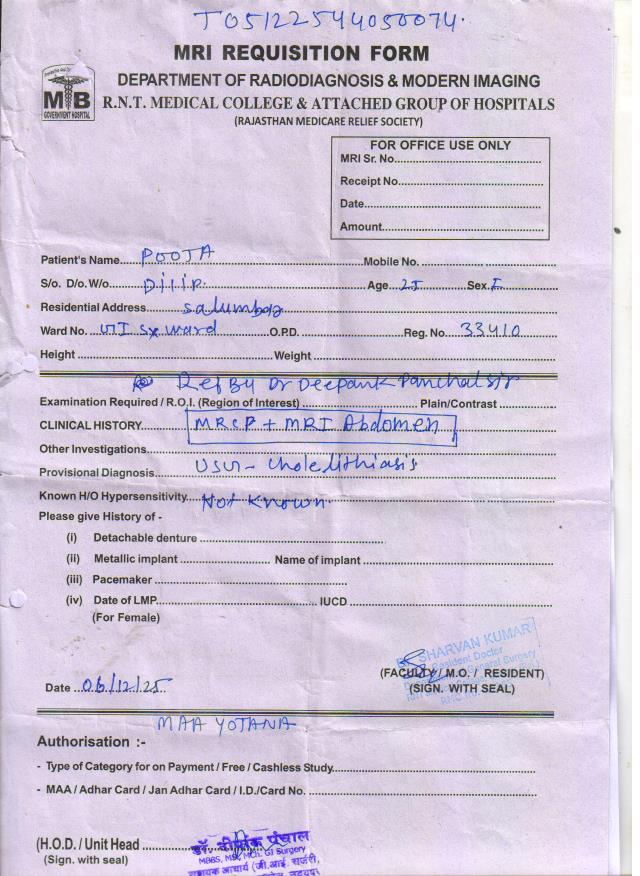 T05122544050074.
MRI REQUISITION FORM
DEPARTMENT OF RADIODIAGNOSIS & MODERN IMAGING
R.N.T. MEDICAL COLLEGE & ATTACHED GROUP OF HOSPITALS
(RAJASTHAN MEDICARE RELIEF SOCIETY)
MB
GOVERNMENT HOSPITAL
FOR OFFICE USE ONLY
MRI Sr. No.
Receipt No.
Date
Amount
Patient's Name POOJA Mobile No.
S/o. D/o. W/o Dilip. Age 25 Sex F
Residential Address salumbar
Ward No. GI sx ward O.P.D. Reg. No. 33410
Height Weight
Ref By Dr Deepank Panchal sir
Examination Required / R.O.I. (Region of Interest) Plain/Contrast
CLINICAL HISTORY MRCP + MRI Abdomen
Other Investigations
Provisional Diagnosis Choledithiasis
Known H/O Hypersensitivity Not Known.
Please give History of -
(i) Detachable denture
(ii) Metallic implant Name of implant
(iii) Pacemaker
(iv) Date of LMP IUCD
(For Female)
Dr. SHARVAN KUMAR
Resident Doctor
General Surgery
(FACULTY / M.O. / RESIDENT)
Date 06/12/25 (SIGN. WITH SEAL)
MAA YOJANA
Authorisation :-
- Type of Category for on Payment / Free / Cashless Study
- MAA / Adhar Card / Jan Adhar Card / I.D./Card No.
(H.O.D. / Unit Head डॉ. दीपांक पंचाल
(Sign. with seal) MBBS, MS, MCh. GI Surgery
सहायक आचार्य (जी.आई. सर्जरी,